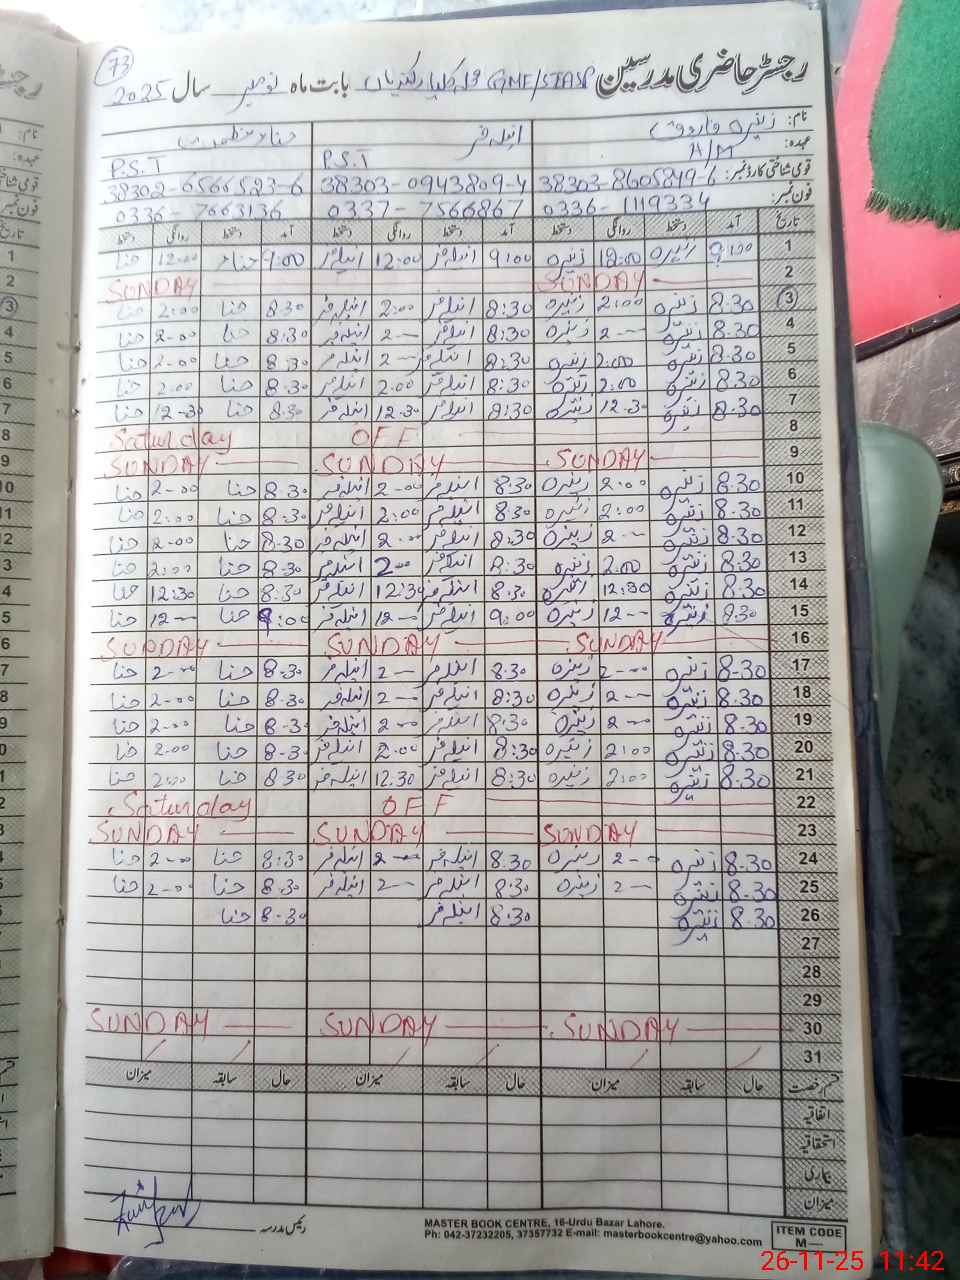 73
رجسٹر حاضری مدرسین GME/STASP بابت ماہ نومبر سال 2025
نام: زنیرہ فاروق انیلہ فر حنا
عہدہ: A/M P.S.T P.S.T
قومی شناختی کارڈ نمبر: 38303-8605849-6 38303-0943809-4 38302-6566523-6
فون نمبر: 0336-1119334 0337-7566867 0336-7663136
تاریخ آمد دستخط روانگی دستخط آمد دستخط روانگی دستخط آمد دستخط روانگی دستخط
1 9:00 زنیرہ 12:00 زنیرہ 9:00 انیلہ فر 12:00 انیلہ فر 9:00 حنا 12:00 حنا
2 SUNDAY SUNDAY
3 8:30 زنیرہ 2:00 زنیرہ 8:30 انیلہ فر 2:00 انیلہ فر 8:30 حنا 2:00 حنا
4 8.30 زنیرہ 2 — زنیرہ 8:30 انیلہ فر 2 — انیلہ فر 8:30 حنا 2-00 حنا
5 8.30 زنیرہ 2:00 زنیرہ 8:30 انیلہ فر 2 — انیلہ فر 8:30 حنا 2-00 حنا
6 8.30 زنیرہ 2:00 زنیرہ 8:30 انیلہ فر 2:00 انیلہ فر 8.30 حنا 2:00 حنا
7 8.30 زنیرہ 12.30 زنیرہ 8:30 انیلہ فر 12.30 انیلہ فر 8.30 حنا 12-30 حنا
8 Saturday OFF
9 SUNDAY SUNDAY SUNDAY
10 8.30 زنیرہ 2:00 زنیرہ 8:30 انیلہ فر 2-00 انیلہ فر 8.30 حنا 2-00 حنا
11 8.30 زنیرہ 2:00 زنیرہ 8:30 انیلہ فر 2:00 انیلہ فر 8.30 حنا 2:00 حنا
12 8.30 زنیرہ 2 — زنیرہ 8:30 انیلہ فر 2-00 انیلہ فر 8.30 حنا 2-00 حنا
13 8.30 زنیرہ 2:00 زنیرہ 8:30 انیلہ فر 2:00 انیلہ فر 8.30 حنا 2:00 حنا
14 8.30 زنیرہ 12:30 زنیرہ 8:30 انیلہ فر 12:30 انیلہ فر 8:30 حنا 12:30 حنا
15 8:30 زنیرہ 12 — زنیرہ 9:00 انیلہ فر 12 — انیلہ فر 9:00 حنا 12 — حنا
16 SUNDAY SUNDAY SUNDAY
17 8-30 زنیرہ 2-00 زنیرہ 8:30 انیلہ فر 2 — انیلہ فر 8-30 حنا 2-00 حنا
18 8.30 زنیرہ 2 — زنیرہ 8:30 انیلہ فر 2 — انیلہ فر 8.30 حنا 2-00 حنا
19 8.30 زنیرہ 2-00 زنیرہ 8:30 انیلہ فر 2-00 انیلہ فر 8-30 حنا 2-00 حنا
20 8.30 زنیرہ 2:00 زنیرہ 8:30 انیلہ فر 2:00 انیلہ فر 8-30 حنا 2-00 حنا
21 8.30 زنیرہ 2:00 زنیرہ 8:30 انیلہ فر 12.30 انیلہ فر 8.30 حنا 2:00 حنا
22 Saturday OFF
23 SUNDAY SUNDAY SUNDAY
24 8.30 زنیرہ 2-0 زنیرہ 8:30 انیلہ فر 2-00 انیلہ فر 8:30 حنا 2-00 حنا
25 8.30 زنیرہ 2 — زنیرہ 8:30 انیلہ فر 2 — انیلہ فر 8.30 حنا 2-00 حنا
26 8.30 زنیرہ 8:30 انیلہ فر 8-30 حنا
27
28
29
30 SUNDAY SUNDAY SUNDAY
31
قسم رخصت حال سابقہ میزان حال سابقہ میزان حال سابقہ میزان
اتفاقیہ
استحقاقیہ
بیماری
میزان
رئیس مدرسہ
MASTER BOOK CENTRE, 16-Urdu Bazar Lahore.
Ph: 042-37232205, 37357732 E-mail: masterbookcentre@yahoo.com
ITEM CODE
M—
26-11-25 11:42